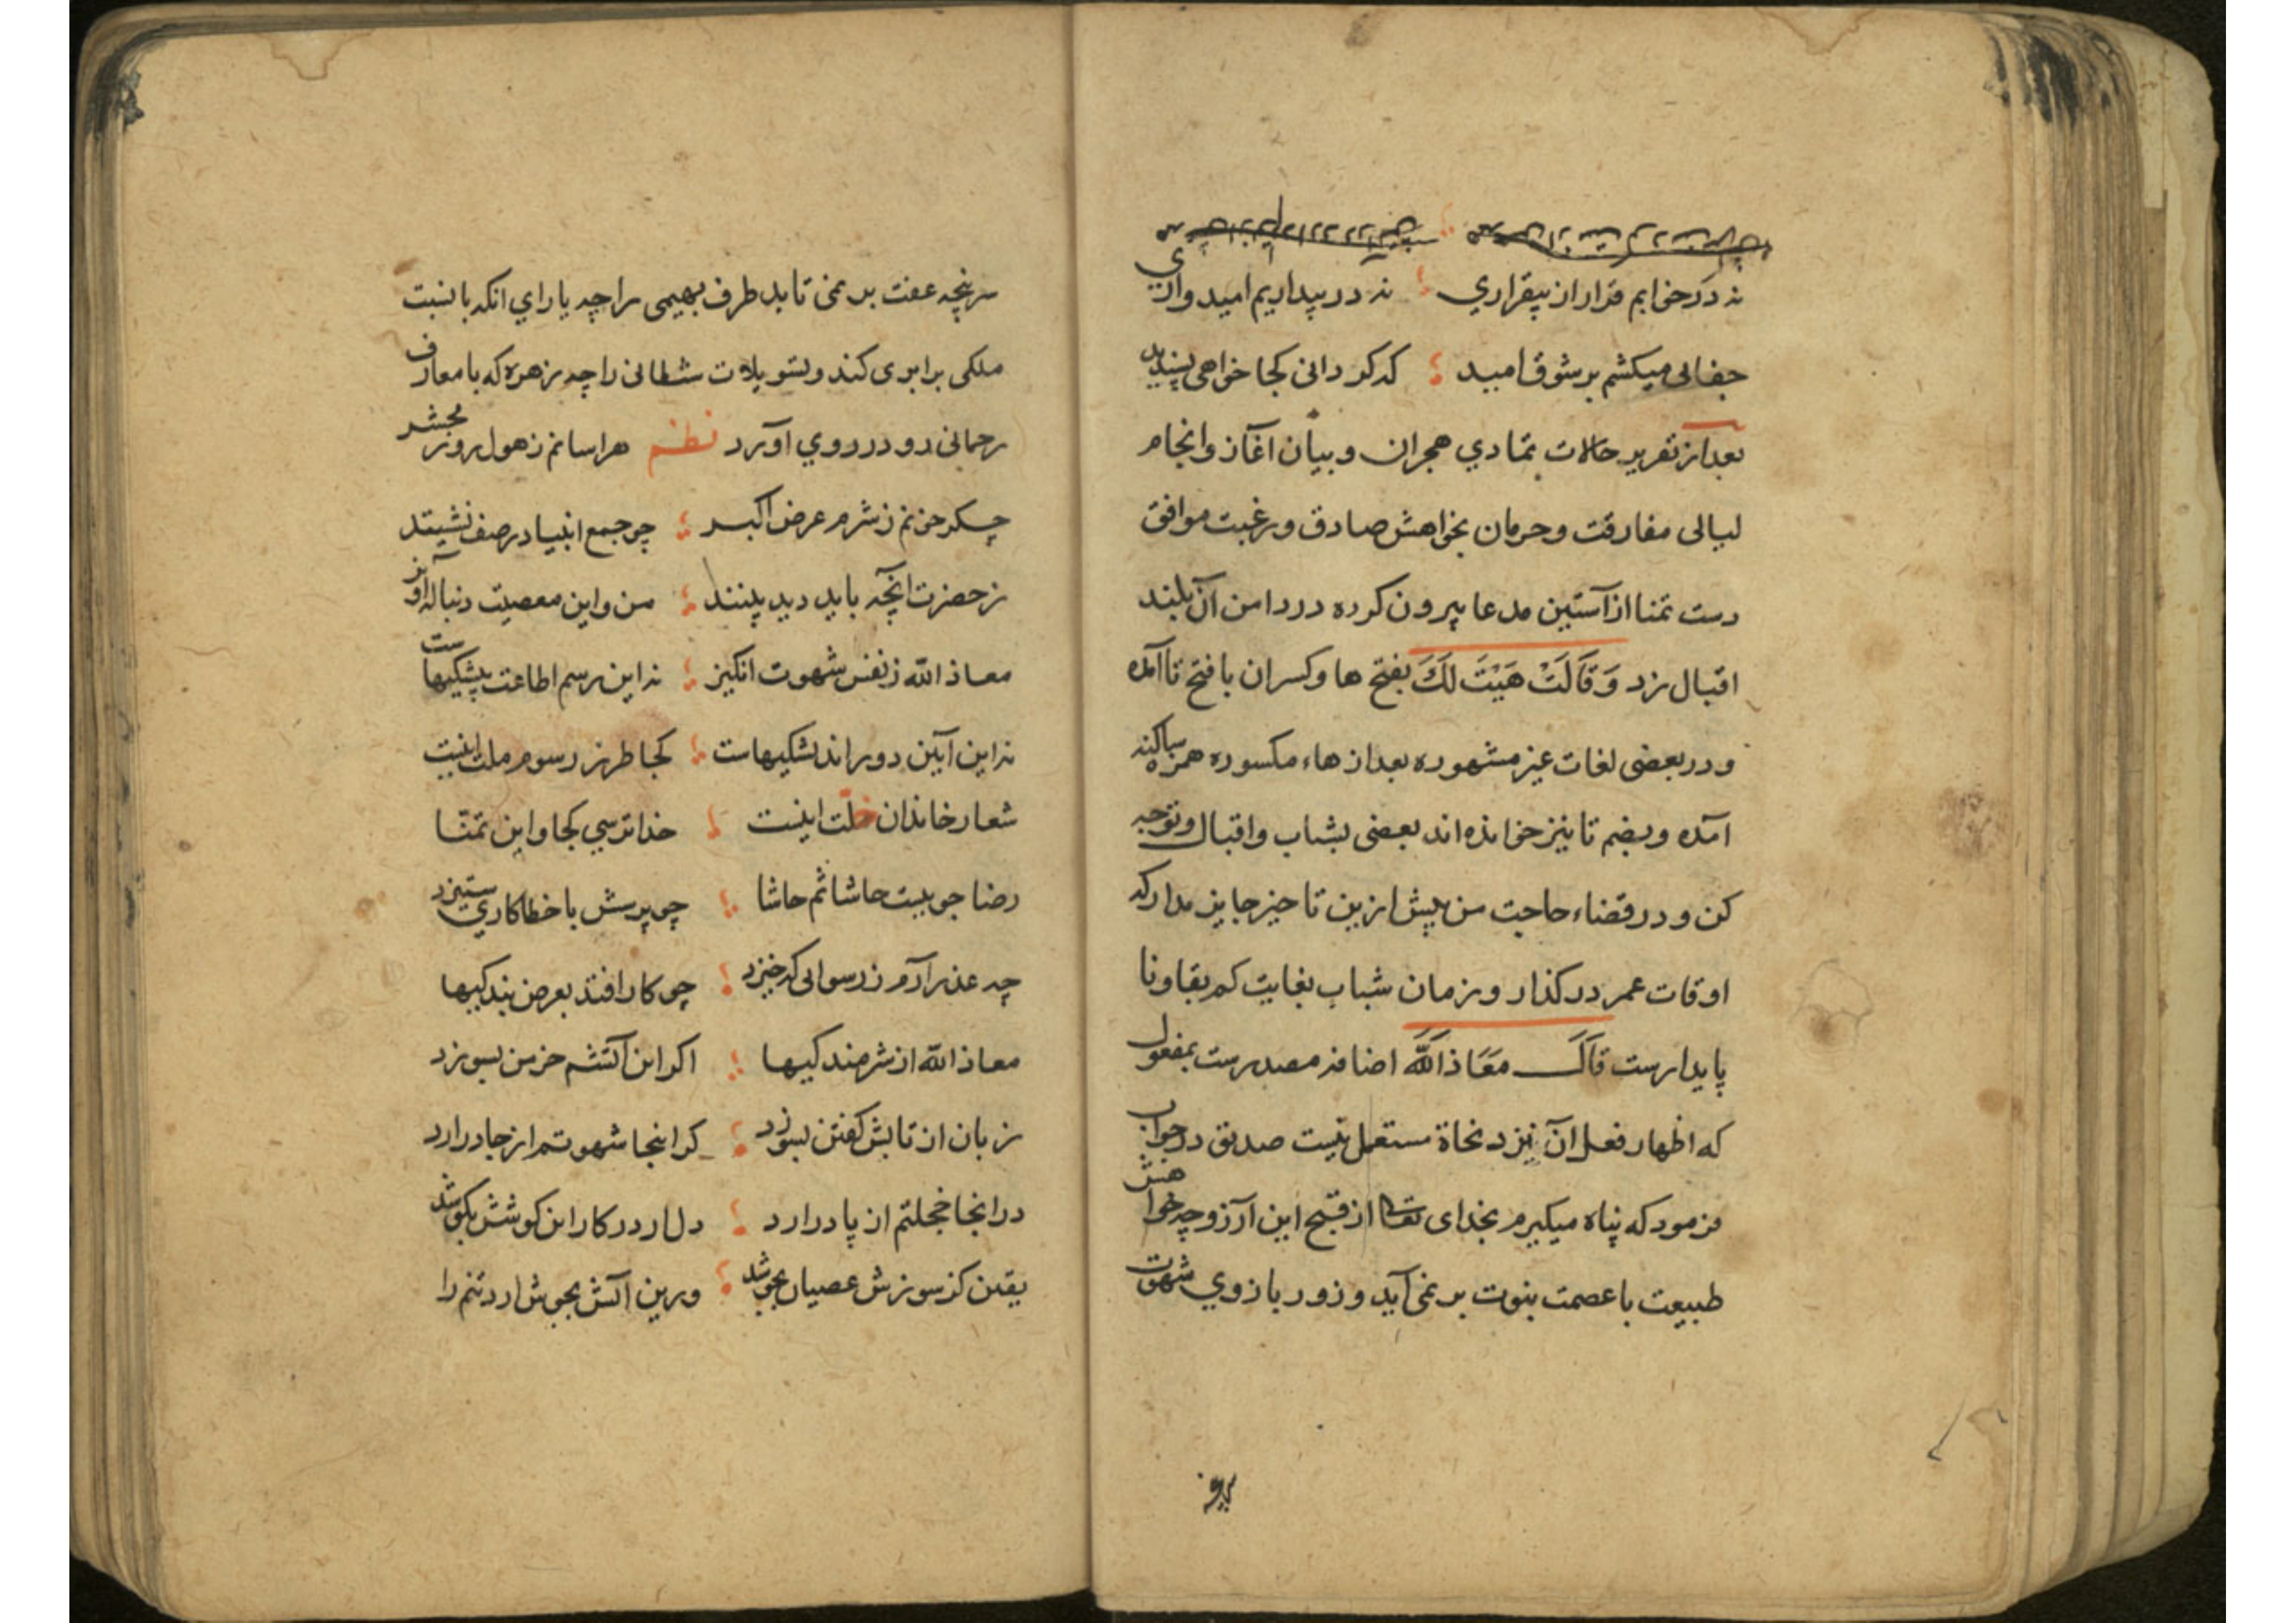 نه در خوابم قرار از بیقراري نه در بیداریم امیدواري
جفائی میکشم بر شوق امید که کر دانی کجا خواهی پسندید
بعد از تقریر حالات تمادي هجران و بیان آغاز و انجام
لیالی مفارقت و حرمان بخواهش صادق و رغبت موافق
دست تمنا از آستین مدعا بیرون کرده در دامن آن بلند
اقبال زد وَقَالَتْ هَیْتَ لَكَ بفتح ها وکسران با فتح تا آمده
و در بعضی لغات غیر مشهوره بعد از هاء مکسوره همزه ساکنه
آمده و بضم تا نیز خوانده اند یعضی بشتاب و اقبال و توجه
کن و در قضاء حاجت من پیش ازین تاخیر جایز مدار که
اوقات عمر در کذار و زمان شباب بغایت کم بقا و نا
پایدارست قَالَ مَعَاذَ اللّٰه اضافه مصدرست بمفعول
که اظهار فعل آن نزد نحاة مستعمل نیست صدیق در جواب
فرمود که پناه میکیرم بخدای تعالی از قبح این آرزو چه خواهش
طبیعت با عصمت نبوت بر نمی آید و زور بازوي شهوت
سرپنجه عفت بر نمی تابد طرف بهیمی را چه یاراي انکه با نسبت
ملکی برابری کند و تسویلات شطانی را چه زهره که با معارف
رحمانی رو در روي آورد نظم هراسانم ز هول روز محشر
چکر خونم ز شرم عرض اکبر چو جمع انبیا در صف نشینند
ز حضرت انچه باید دید بینند من و این معصیت دنباله آویز
معاذ الله ز نفس شهوت انکیز نه این رسم اطاعت پیشکیهاست
نه این آیین دور اندیشکیهاست کجا طرز رسوم ملت اینست
شعار خاندان خلت اینست خدا ترسي کجا و این تمنا
رضا جوییت حاشا ثم حاشا چو پرسش با خطا کاري ستیزد
چه عذر آرم ز رسوایی که خیزد چو کار افتد بعرض بندکیها
معاذ الله از شرمندکیها اکر این آتشم خرمن بسوزد
زبان از تابش کفتن بسوزد کر اینجا شهوتم از جا در ارد
در انجا خجلتم از پا در ارد دل ار در کار این کوشش بکوشد
یقین کز سوزش عصیان بجوشد ورین آتش بجوش ارد تنم را